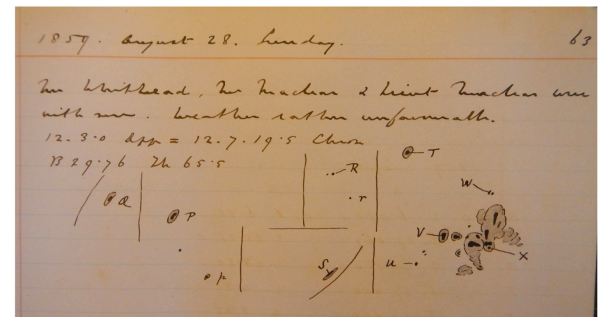 1859. August 28. Sunday.
63
Mr Whithead, Mr Maclear & Lieut Maclear were
with me. Weather rather unfavorable.
12. 3. 0 App = 12. 7. 19.5 Chron
B 29.76 Th 65.5
R
T
W
Q
P
r
V
X
S
u
p